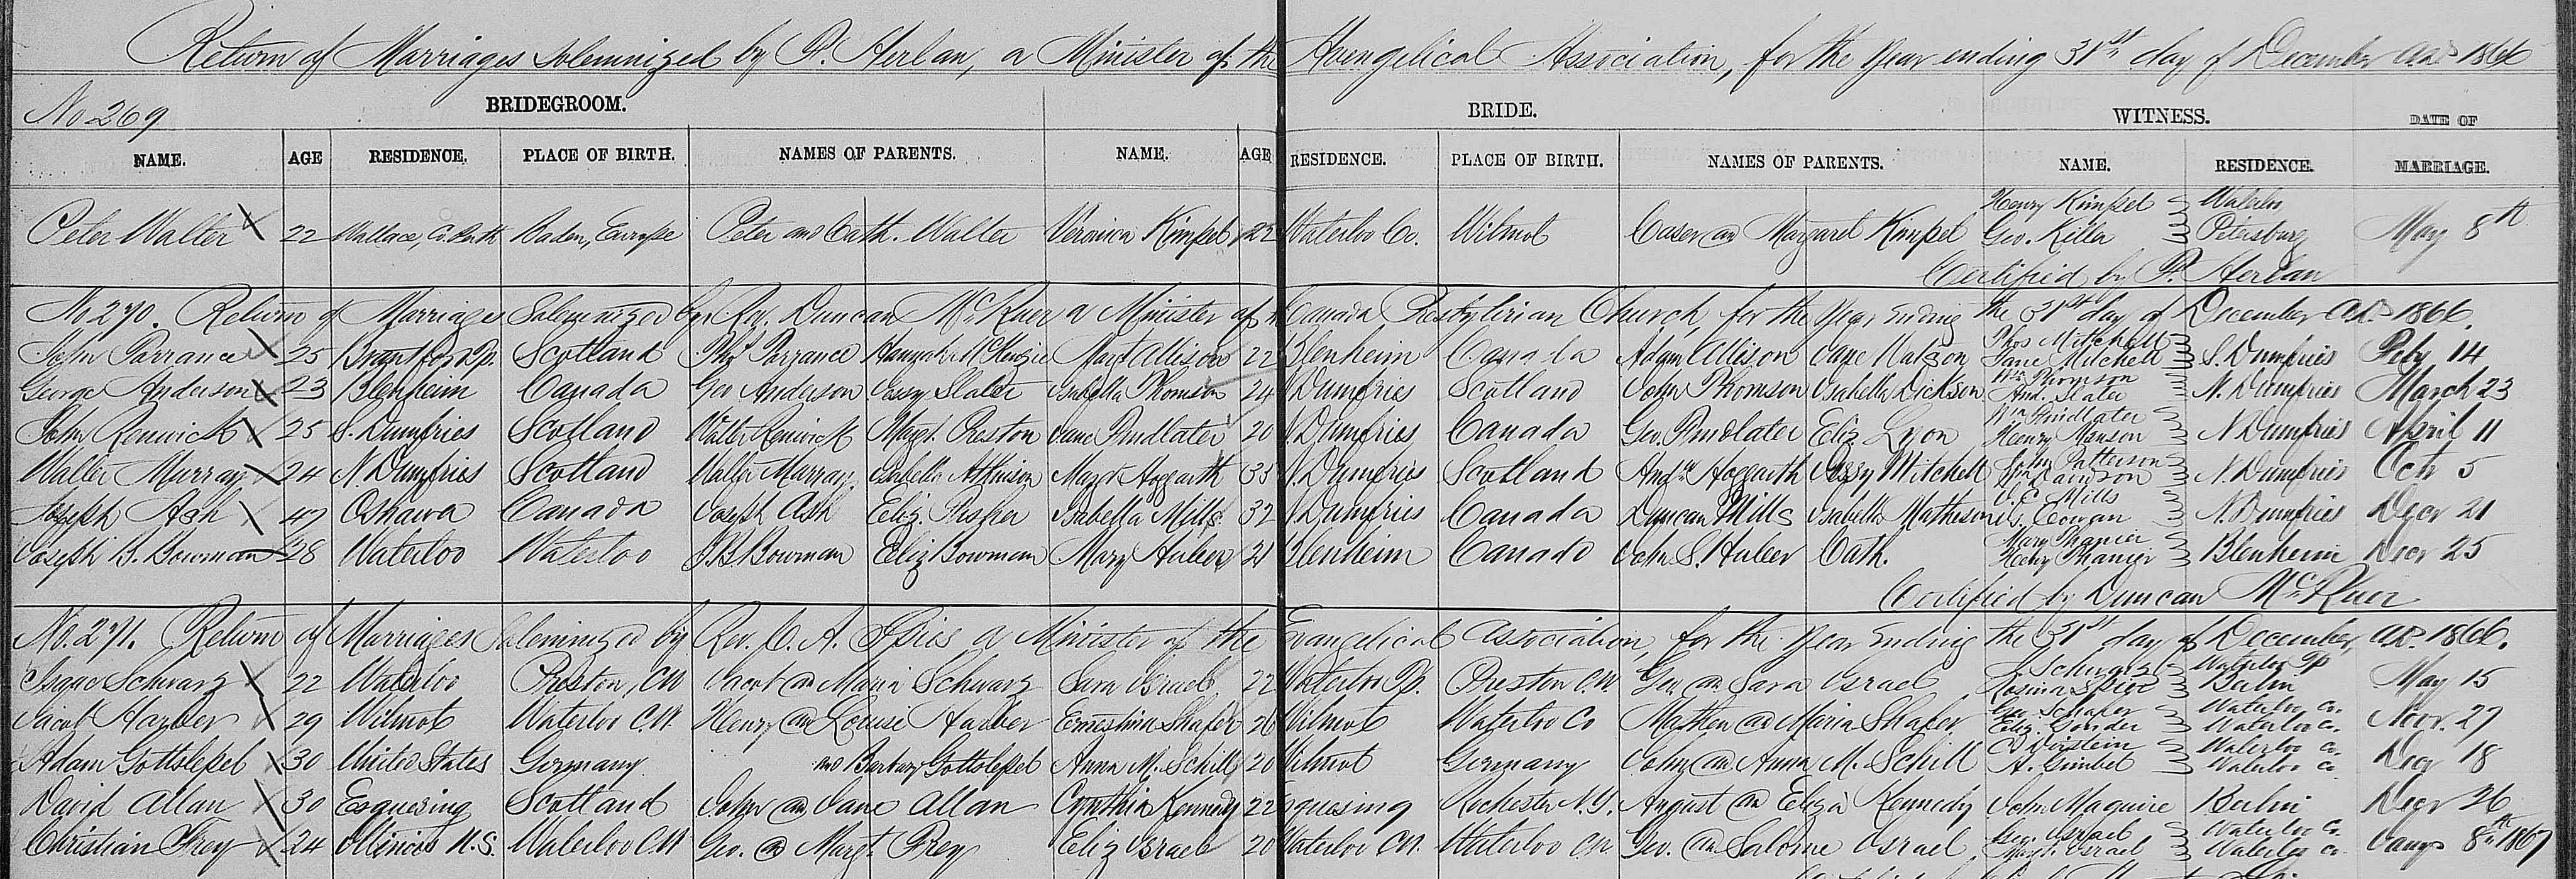 Return of Marriages Solemnized by P. Herlan, a Minister of the Evangelical Association, for the Year ending 31st day of December AD 1866
No 269 BRIDEGROOM. BRIDE. WITNESS. DATE OF
NAME. AGE RESIDENCE. PLACE OF BIRTH. NAMES OF PARENTS. NAME. AGE RESIDENCE. PLACE OF BIRTH. NAMES OF PARENTS. NAME. RESIDENCE. MARRIAGE.
Henry Kimpel Waterloo
Peter Walter 22 Wallace, Co. Perth Baden, Europe Peter and Cath. Walter Veronica Kimpel 22 Waterloo Co. Wilmot Casper and Margaret Kimpel Geo. Killer Petersburg May 8th
Certified by P. Herlan
No 270. Return of Marriages Solemnized by Rev. Duncan McRuer a Minister of Canada Presbyterian Church, for the Year Ending the 31st day of December AD 1866.
Thos Mitchell
John Parrance 25 Brantford Tp. Scotland Thos Parrance Hannah McKenzie Margt Allison 22 Blenheim Canada Adam Allison Jane Watson Jane Mitchell S. Dumfries Feby 14
Wm Thomson
George Anderson 23 Blenheim Canada Geo Anderson Jessy Slater Isabella Thomson 24 N Dumfries Scotland John Thomson Isabella Dickson And. Slater N. Dumfries March 23
Wm Findlater
John Renwick 25 S. Dumfries Scotland Walter Renwick Margt. Preston Jane Findlater 20 N Dumfries Canada Geo. Findlater Eliz Lyon Henry Manson N Dumfries April 11
John Patterson
Walter Murray 24 N. Dumfries Scotland Walter Murray Isabella Atkinson Margt Hoggarth 35 N Dumfries Scotland Andw Hoggarth Jessy Mitchell Wm Davidson N. Dumfries Oct 5
Mills
Joseph Ash 47 Oshawa Canada Joseph Ash Eliz. Fisher Isabella Mills 32 N Dumfries Canada Duncan Mills Isabella Matheson Cowan N. Dumfries Decr 21
Mary
Joseph B. Bowman 28 Waterloo Waterloo J B Bowman Eliz Bowman Mary Huber 21 Blenheim Canada John S. Huber Cath. Henry Blenheim Decr 25
Certified by Duncan McRuer
No. 271. Return of Marriages Solemnized by Rev. C. A. Spies a Minister of the Evangelical Association, for the Year Ending the 31st day of December, AD. 1866.
Schwarz Waterloo Tp
Isaac Schwarz 22 Waterloo Preston, CW Jacob and Maria Schwarz Sara Israel 22 Waterloo Tp. Preston C.W. Geo. and Sara Israel Rosina Spies Berlin May 15
Geo. Schafer Waterloo Co.
Jacob Harber 29 Wilmot Waterloo C.W. Henry and Louise Harber Ernestina Shafer 26 Wilmot Waterloo Co Mathew and Maria Shafer Eliz. Waterloo Co. Novr. 27
Waterloo Co.
Adam Gottslepel 30 United States Germany and Barbary Gottslepel Anna M. Schill 20 Wilmot Germany John and Anna M. Schill A. Gimbel Waterloo Co Decr 18
David Allan 30 Esquesing Scotland John and Jane Allan Cynthia Kennedy 22 Esquesing Rochester N.Y. August and Eliza Kennedy John Maguire Berlin Decr 26
Geo. Israel Waterloo Co.
Christian Frey 24 Illinois U.S. Waterloo C.W. Geo. & Margt. Frey Eliz Israel 20 Waterloo C.W. Waterloo C.W. Geo. and Salome Israel Margt. Israel Waterloo Co. Jany 8th 1867